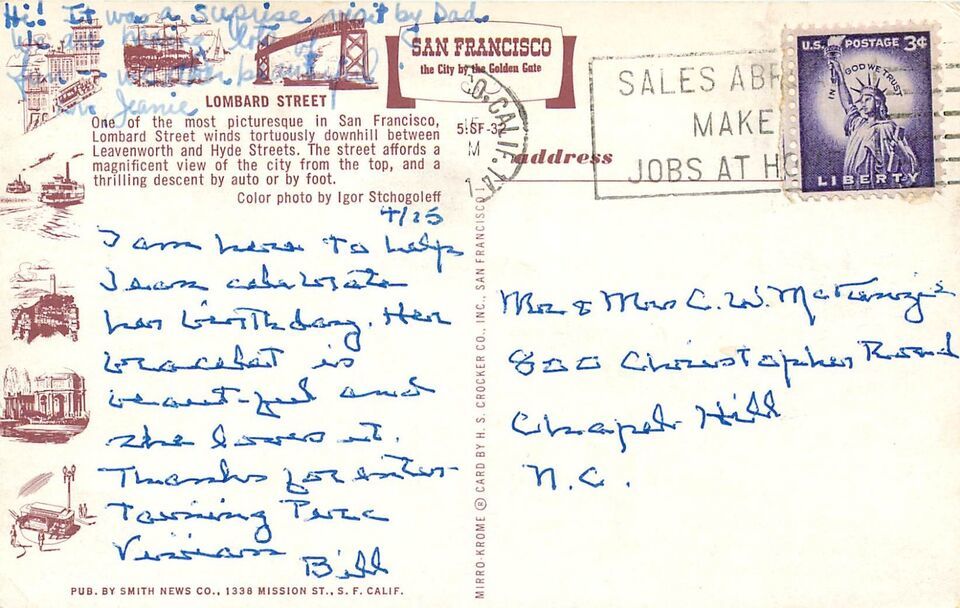 Hi! It was a suprise visit by Dad.
We are having lots of
fun
Jeanie
SAN FRANCISCO
the City by the Golden Gate
LOMBARD STREET
One of the most picturesque in San Francisco,
Lombard Street winds tortuously downhill between
Leavenworth and Hyde Streets. The street affords a
magnificent view of the city from the top, and a
thrilling descent by auto or by foot.
Color photo by Igor Stchogoleff
5:SF-32
4/25
I am here to help
Jean celebrate
her birthday. Her
bracelet is
beautiful and
she loves it.
Thanks for enter-
taining
Vivian
Bill
PUB. BY SMITH NEWS CO., 1338 MISSION ST., S. F. CALIF.
MIRRO-KROME ® CARD BY H. S. CROCKER CO., INC., SAN FRANCISCO 1
address
CO. CALIF. 14
M
SALES ABR
MAKE
JOBS AT HO
U.S. POSTAGE 3¢
IN GOD WE TRUST
LIBERTY
Mr & Mrs C. W. McKenzie
800 Christopher Road
Chapel Hill
N.C.